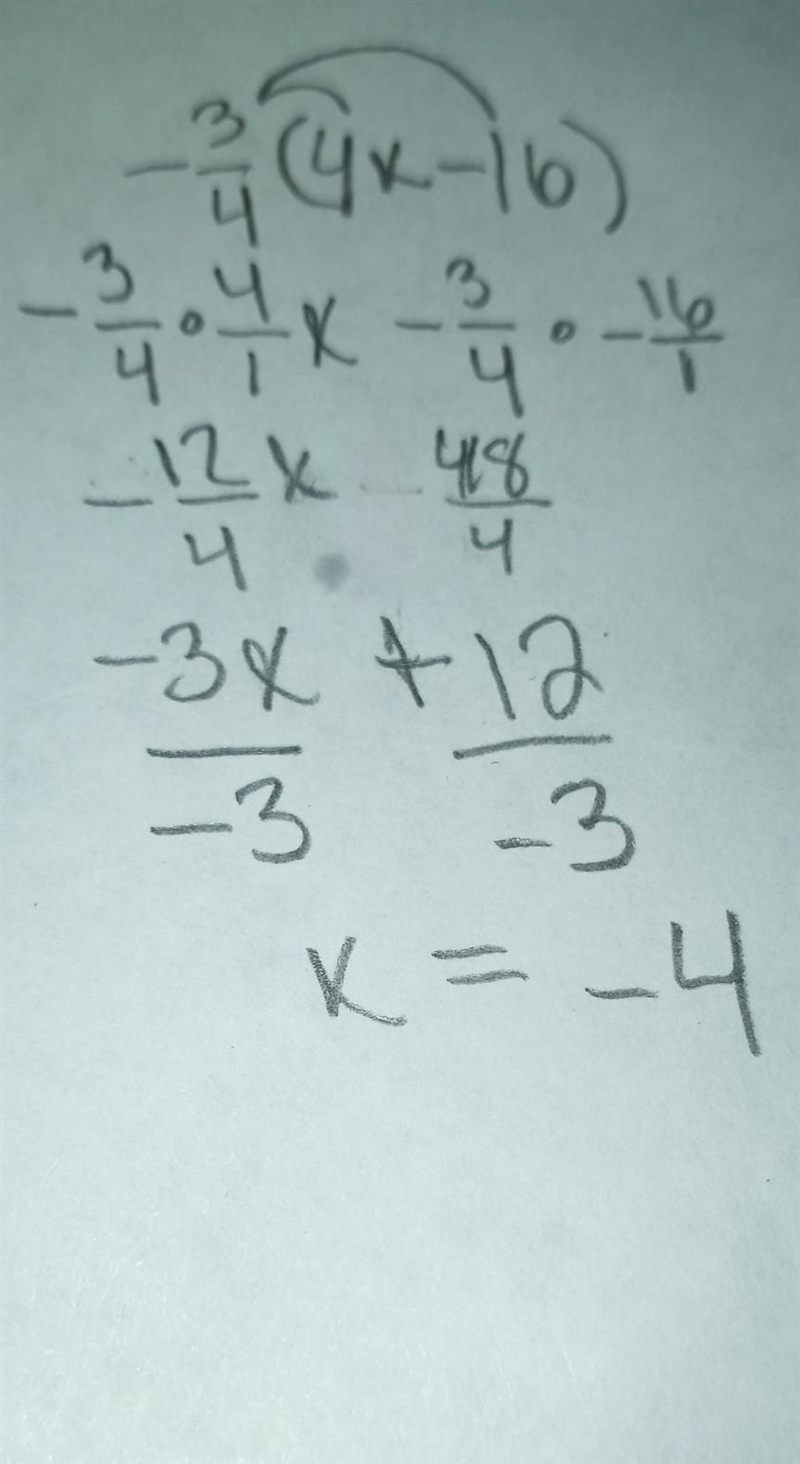 -3/4(4x-16)
-3/4 • 4/1 x -3/4 • -16/1
-12/4 x - 48/4
-3x/-3 +12/-3
x = -4